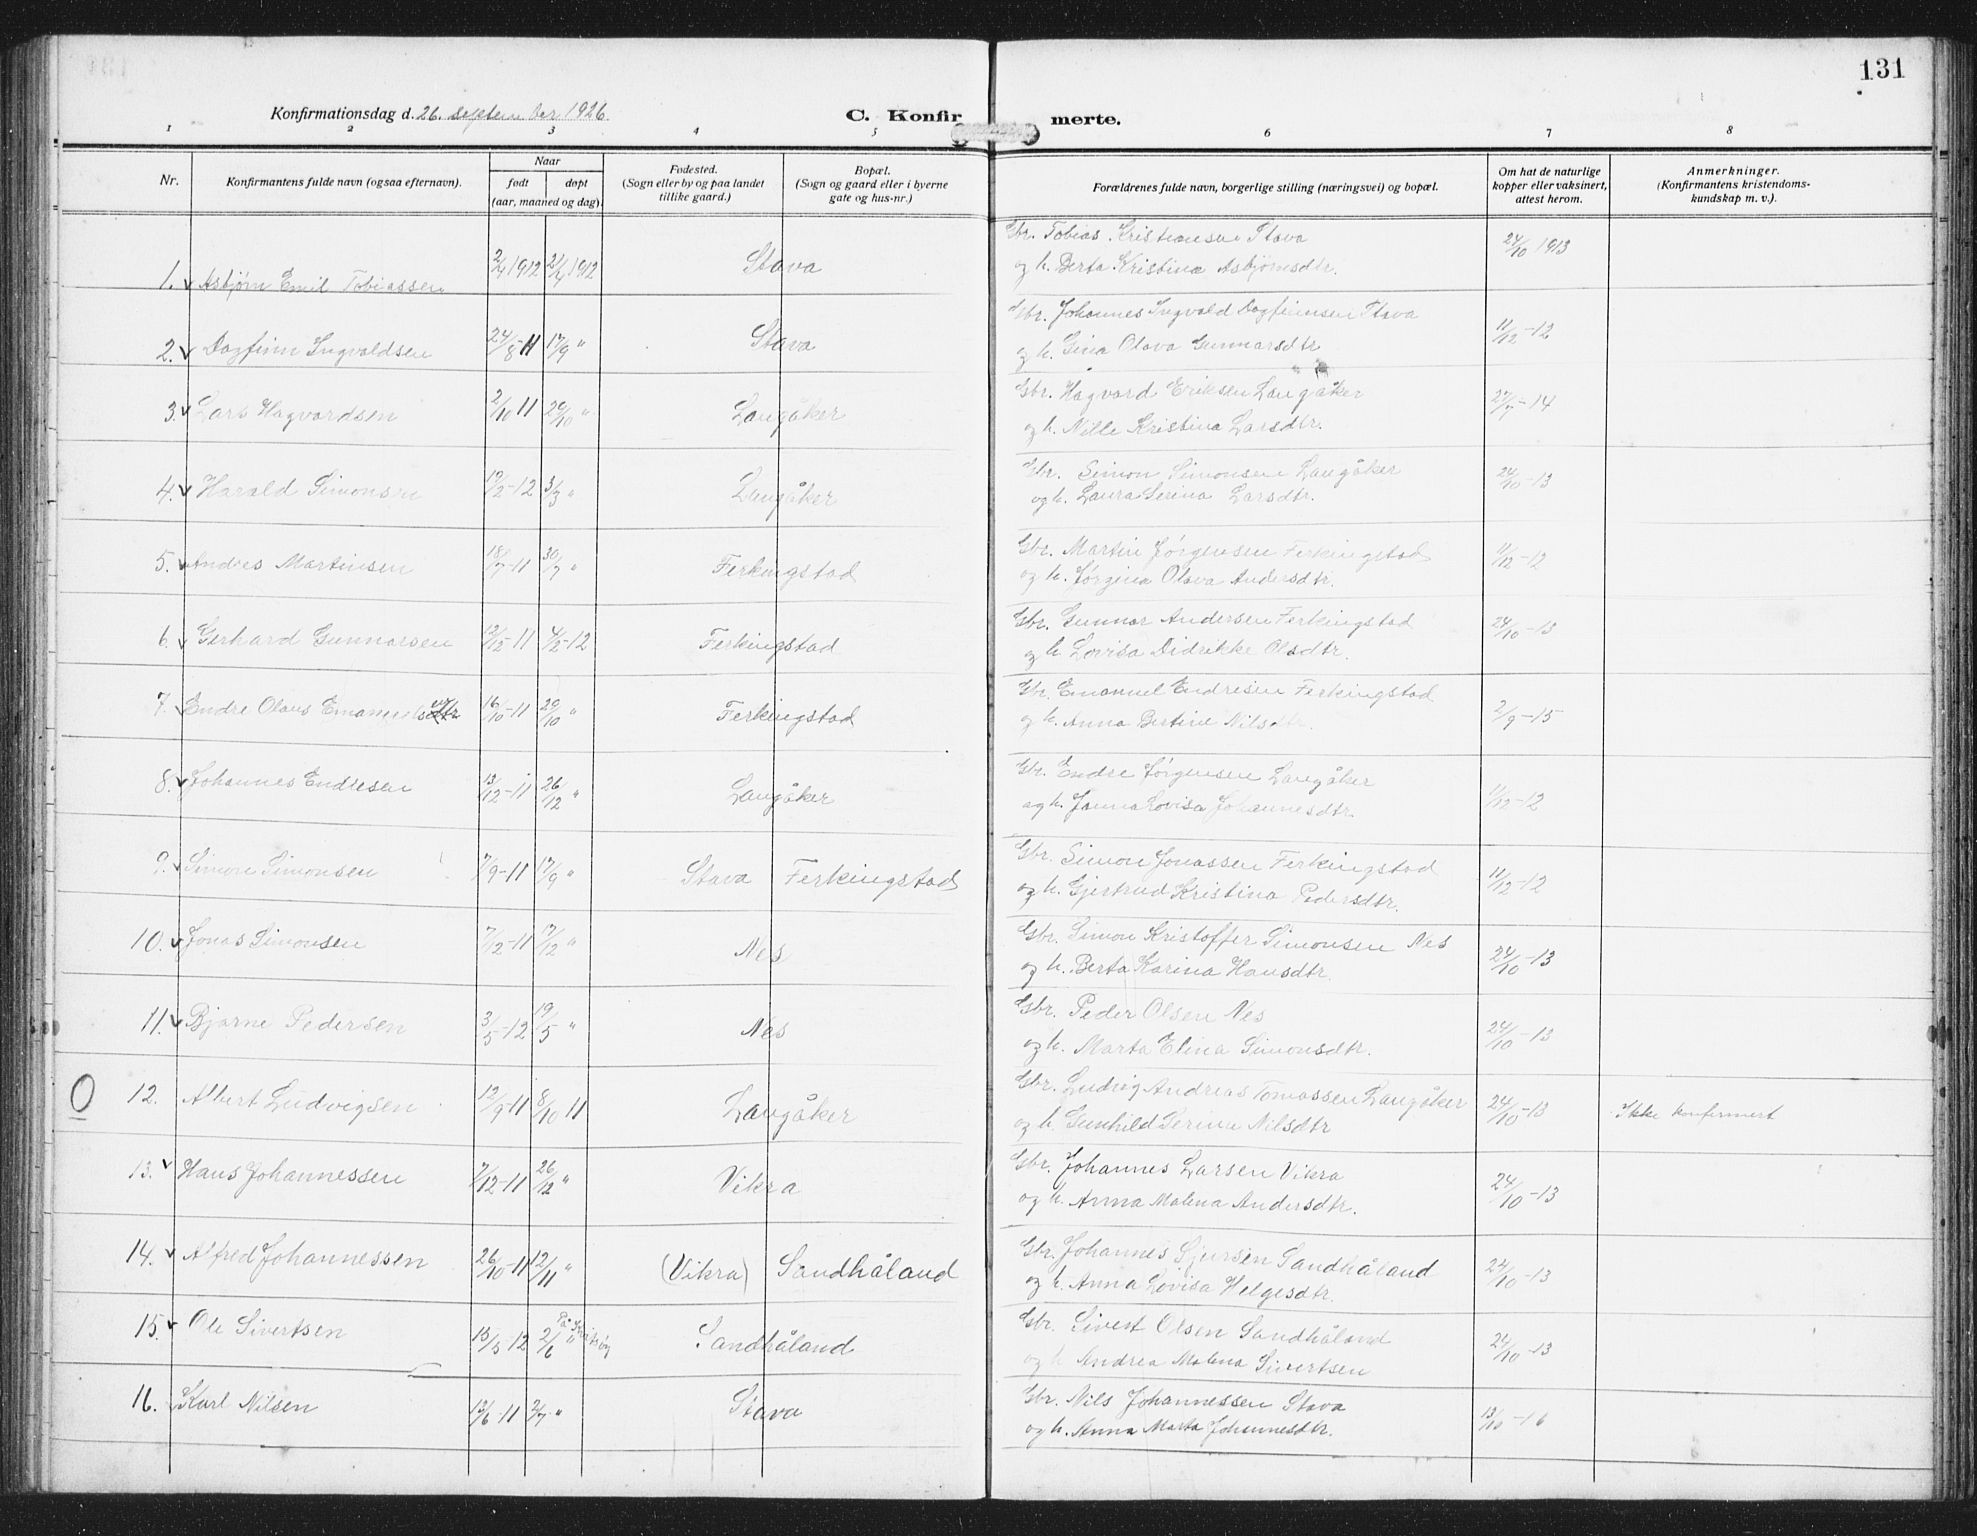 131
Konfirmationsdag d. 26. september 1926.
C. Konfir merte.
1 2 3 4 5 6 7 8
Nr.
Konfirmantens fulde navn (ogsaa efternavn).
Naar
født døpt
(aar, maaned og dag).
Fødested.
(Sogn eller by og paa landet
tillike gaard.)
Bopæl.
(Sogn og gaard eller i byerne
gate og hus-nr.)
Forældrenes fulde navn, borgerlige stilling (næringsvei) og bopæl.
Om hat de naturlige
kopper eller vaksinert,
attest herom.
Anmerkninger.
(Konfirmantens kristendoms-
kundskap m. v.).
Gbr. Tobias Kristiansen Stava
1. Asbjørn Emil Tobiassen 2/4 1912 21/4 1912 Stava og h. Berta Kristine Asbjørnsdtr. 24/10 1913
Gbr. Johannes Ingvald Dagfinnsen Stava
2. Dagfinn Ingvaldsen 24/8-11 17/9 " Stava og h. Gina Olava Gunnarsdtr 11/12-12
Gbr. Hagvard Eriksen Langåker
3. Lars Hagvardsen 2/10 11 29/10 " Langåker og h. Nille Kristina Larsdtr. 27/7-14
Gbr. Simon Simonsen Langåker
4. Harald Simonsen 17/2-12 3/3 " Langåker og h. Laura Serina Larsdtr. 24/10-13
Gbr. Martin Jørgensen Ferkingstad
5. Andres Martinsen 18/7-11 30/7 " Ferkingstad og h. Jørgina Olava Andersdtr. 11/12-12
Gbr. Gunnar Andersen Ferkingstad
6. Gerhard Gunnarsen 12/12-11 4/2-12 Ferkingstad og h. Lovisa Didrikke Olsdtr. 24/10-13
Gbr. Emanuel Endresen Ferkingstad
7. Endre Olaus Emanuelsen 16/10-11 29/10 " Ferkingstad og h. Anna Bertine Nilsdtr. 2/9-15
Gbr. Endre Jørgensen Langåker
8. Johannes Endresen 13/12-11 26/12 " Langåker og h. Janna Lovisa Johannesdtr. 11/12-12
Gbr. Simon Jonassen Ferkingstad
9. Simon Simonsen 7/9-11 17/9 " Stava Ferkingstad og h. Gjertrud Kristina Pedersdtr. 11/12-12
Gbr. Simon Kristoffer Simonsen Nes
10. Jonas Simonsen 7/12-11 17/12 " Nes og h. Berta Karina Hansdtr. 24/10-13
Gbr. Peder Olsen Nes
11. Bjarne Pedersen 3/5-12 19/5 " Nes og h. Marta Elina Simonsdtr. 24/10-13
Gbr. Ludvig Andreas Tomassen Langåker
0 12. Albert Ludvigsen 12/9-11 8/10 11 Langåker og h. Gunhild Serine Nilsdtr 24/10-13 Ikke konfirmert
Gbr. Johannes Larsen Vikra
13. Hans Johannessen 7/12-11 26/12 " Vikra og h. Anna Malena Andersdtr. 24/10-13
Gbr. Johannes Sjursen Sandhåland
14. Alfred Johannessen 26/10-11 12/11 " (Vikra) Sandhåland og h. Anna Lovisa Helgesdtr. 24/10-13
Gbr. Sivert Olsen Sandhåland
15. Ole Sivertsen 15/5 12 2/6 " På Sandhåland og h. Andrea Malena Sivertsen 24/10-13
Gbr. Nils Johannessen Stava
16. Karl Nilsen 13/6-11 2/7 " Stava og h. Anna Marta Johannesdtr. 13/10-16